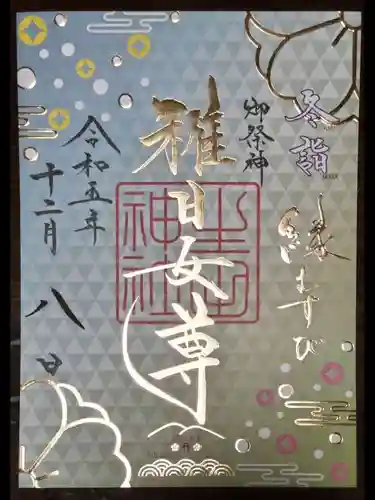 冬詣
縁むすび
御祭神
稚日女尊
令和五年
十二月
八日